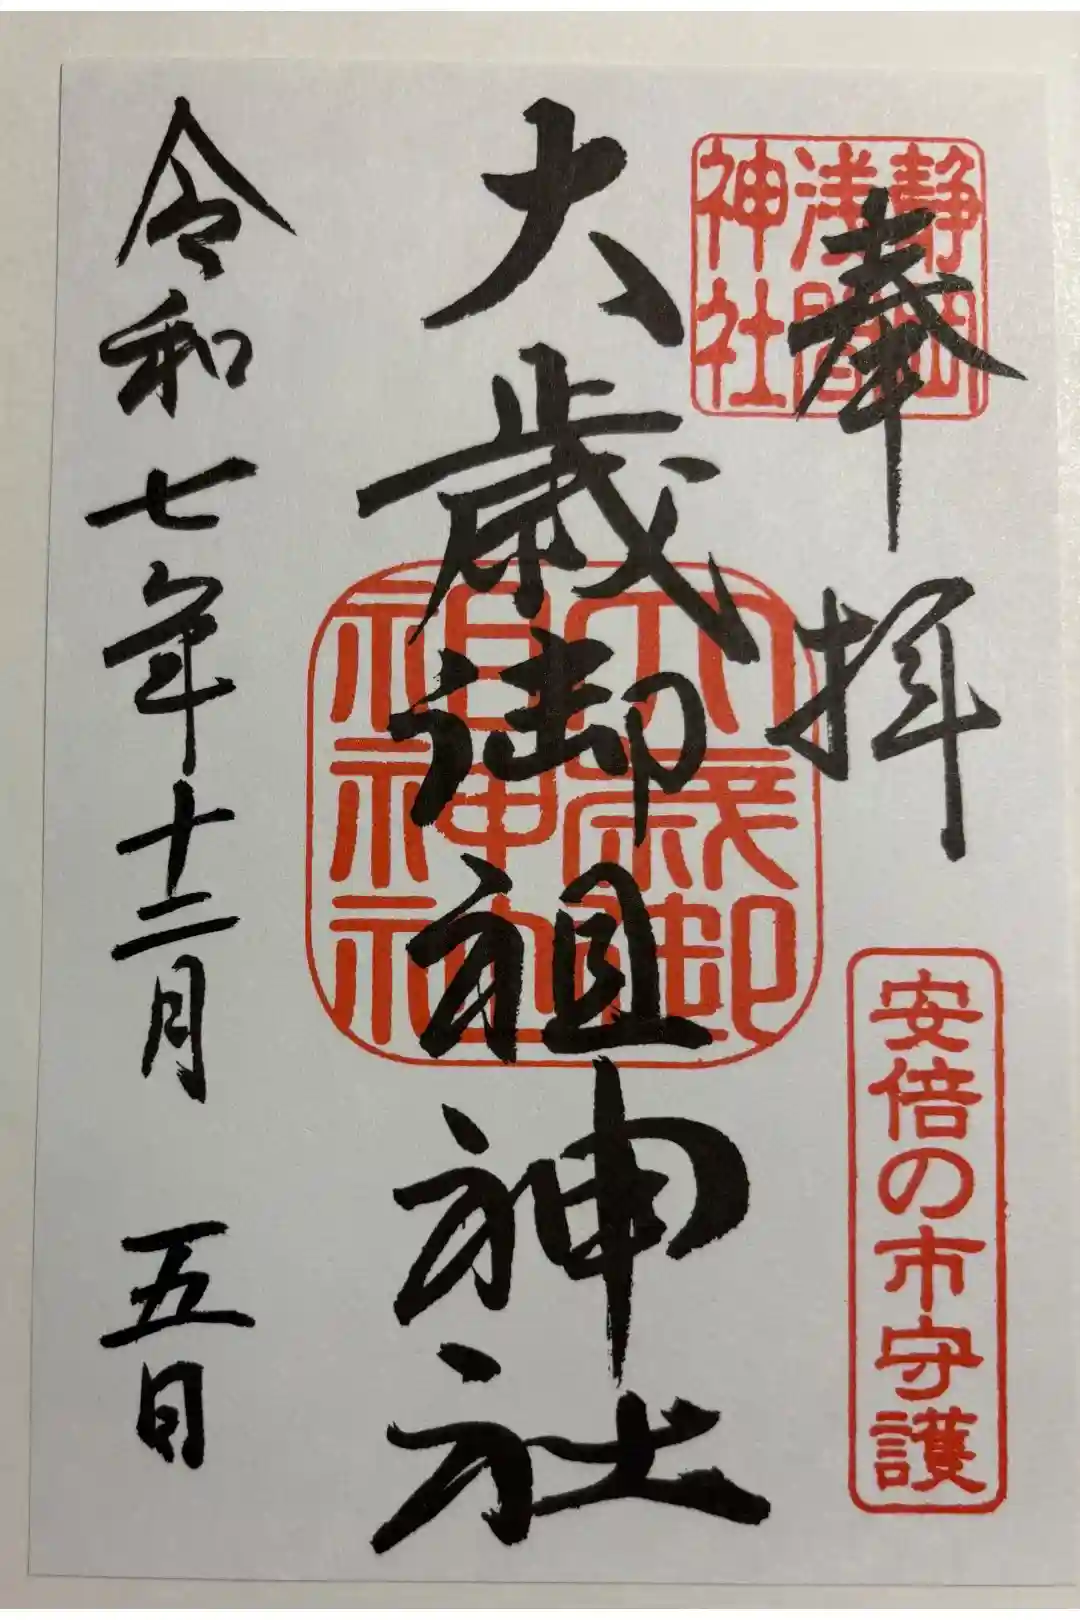 静岡
浅間
神社
奉拝
安倍の市守護
大歳御祖神社
大歳御
祖神社
令和七年十二月 五日